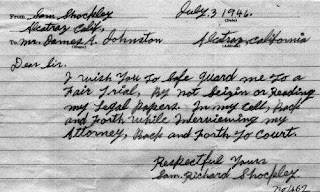 From Sam Shockley July, 3 1946.
(Date)
Alcatraz Calif.
To Mr. James A. Johnston Alcatraz, California
Dear Sir.
I wish You To Safe guard me To a
Fair Trial, By not Seizin or Reading
my Legal Papers. In my Cell, Back
and Forth While Interviewing my
Attorney, Back and Forth To Court.
Respectful Yours
Sam. Richard Shockley
No 462